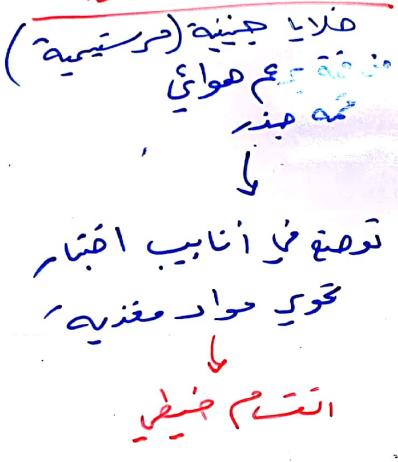 خلايا جنينية (مرستيمية)
من قمة برعم هوائي
قمة جذر
↓
توضع في أنابيب اختبار
تحوي مواد مغذية
↓
انقسام خيطي